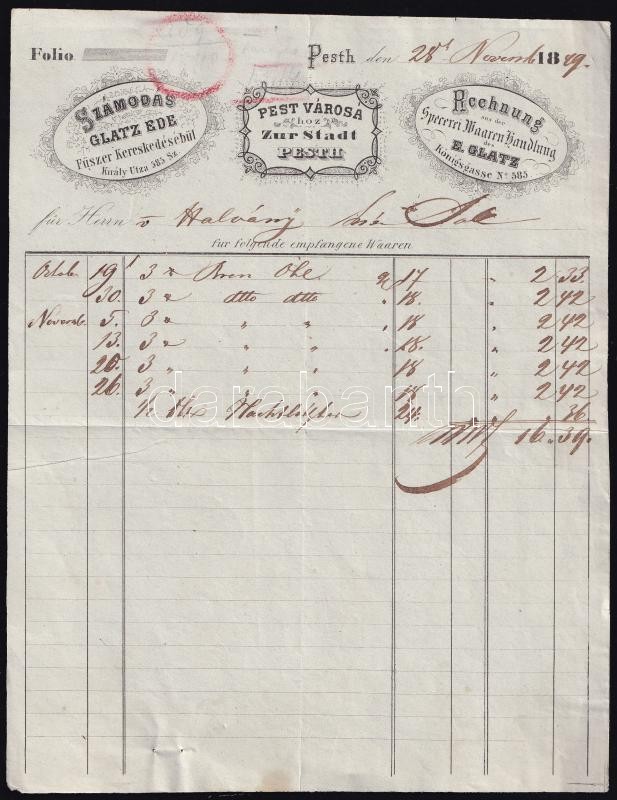 Folio
Pesth den 28t Novemb 1849.
SZÁMODAS
GLATZ EDE
Fűszer Kereskedésébül
Király Utza 585 Sz.
PEST VÁROSA
hoz
Zur Stadt
PESTH
Rechnung
aus der
Specerei Waaren Handlung
des
E. GLATZ
Königsgasse No 585
für Herrn v Halvány
für folgende empfangene Waaren
October 19 3 Bren Öhl 17 " 2 33
30. 3 dtto dtto " 18. " 2 42
Novemb. 5. 3 " " " 18 " 2 42
13. 3 " " " 18. " 2 42
20. 3 " " " 18 " 2 42
26. 3 " " " 18 " 2 42
24. " " 36
16 " 39.
darabanth